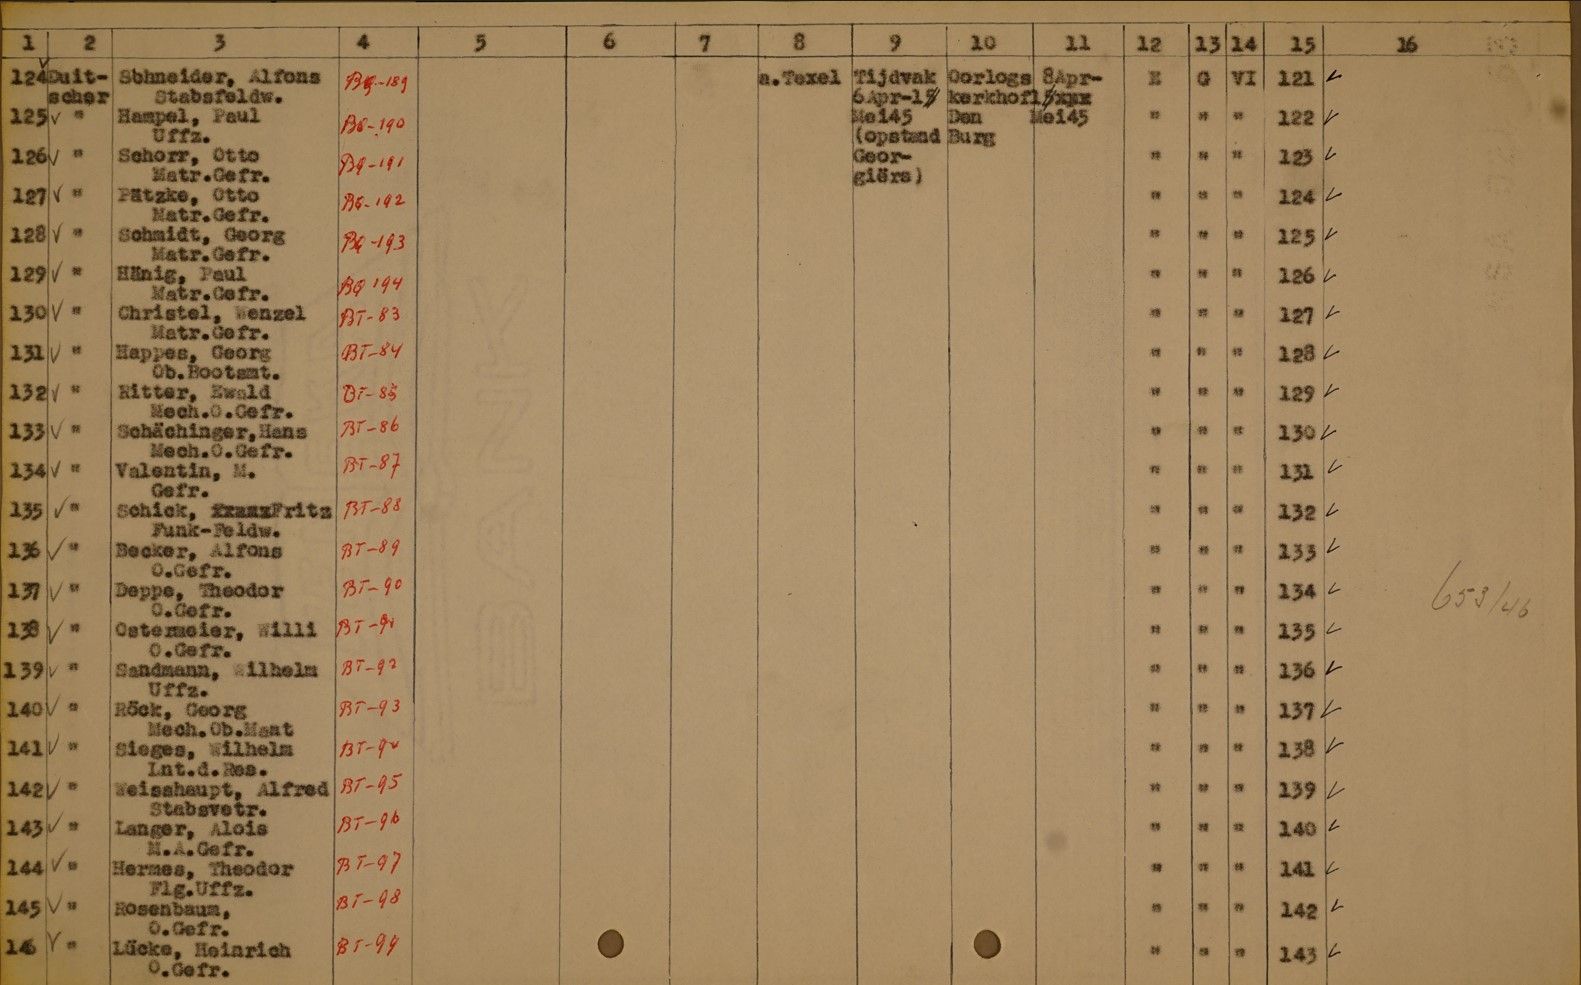 1 2 3 4 5 6 7 8 9 10 11 12 13 14 15 16
124 Duit- Schneider, Alfons BQ-189 a.Texel Tijdvak Oorlogs 8Apr- E G VI 121
scher Stabsfeldw. 6Apr-15 kerkhof 15xxx
125 " Hampel, Paul BQ-190 Mei45 Den Mei45 " " " 122
Uffz. (opstand Burg
126 " Schorr, Otto BQ-191 Geor- " " " 123
Matr.Gefr. giërs)
127 " Pätzke, Otto BQ-192 " " " 124
Matr.Gefr.
128 " Schmidt, Georg BQ-193 " " " 125
Matr.Gefr.
129 " Hänig, Paul BQ 194 " " " 126
Matr.Gefr.
130 " Christel, Wenzel BT-83 " " " 127
Matr.Gefr.
131 " Happes, Georg BT-84 " " " 128
Ob.Bootsmt.
132 " Ritter, Ewald BT-85 " " " 129
Mech.O.Gefr.
133 " Schächinger,Hans BT-86 " " " 130
Mech.O.Gefr.
134 " Valentin, M. BT-87 " " " 131
Gefr.
135 " Schick, Fritz BT-88 " " " 132
Funk-Feldw.
136 " Becker, Alfons BT-89 " " " 133
O.Gefr.
137 " Deppe, Theodor BT-90 " " " 134
O.Gefr.
138 " Ostermeier, Willi BT-91 " " " 135
O.Gefr.
139 " Sandmann, Wilhelm BT-92 " " " 136
Uffz.
140 " Röck, Georg BT-93 " " " 137
Mech.Ob.Maat
141 " Sieges, Wilhelm BT-94 " " " 138
Lnt.d.Res.
142 " Weisshaupt, Alfred BT-95 " " " 139
Stabsvetr.
143 " Langer, Alois BT-96 " " " 140
M.A.Gefr.
144 " Hermes, Theodor BT-97 " " " 141
Flg.Uffz.
145 " Rosenbaum, BT-98 " " " 142
O.Gefr.
146 " Lücke, Heinrich BT-99 " " " 143
O.Gefr.
653/46